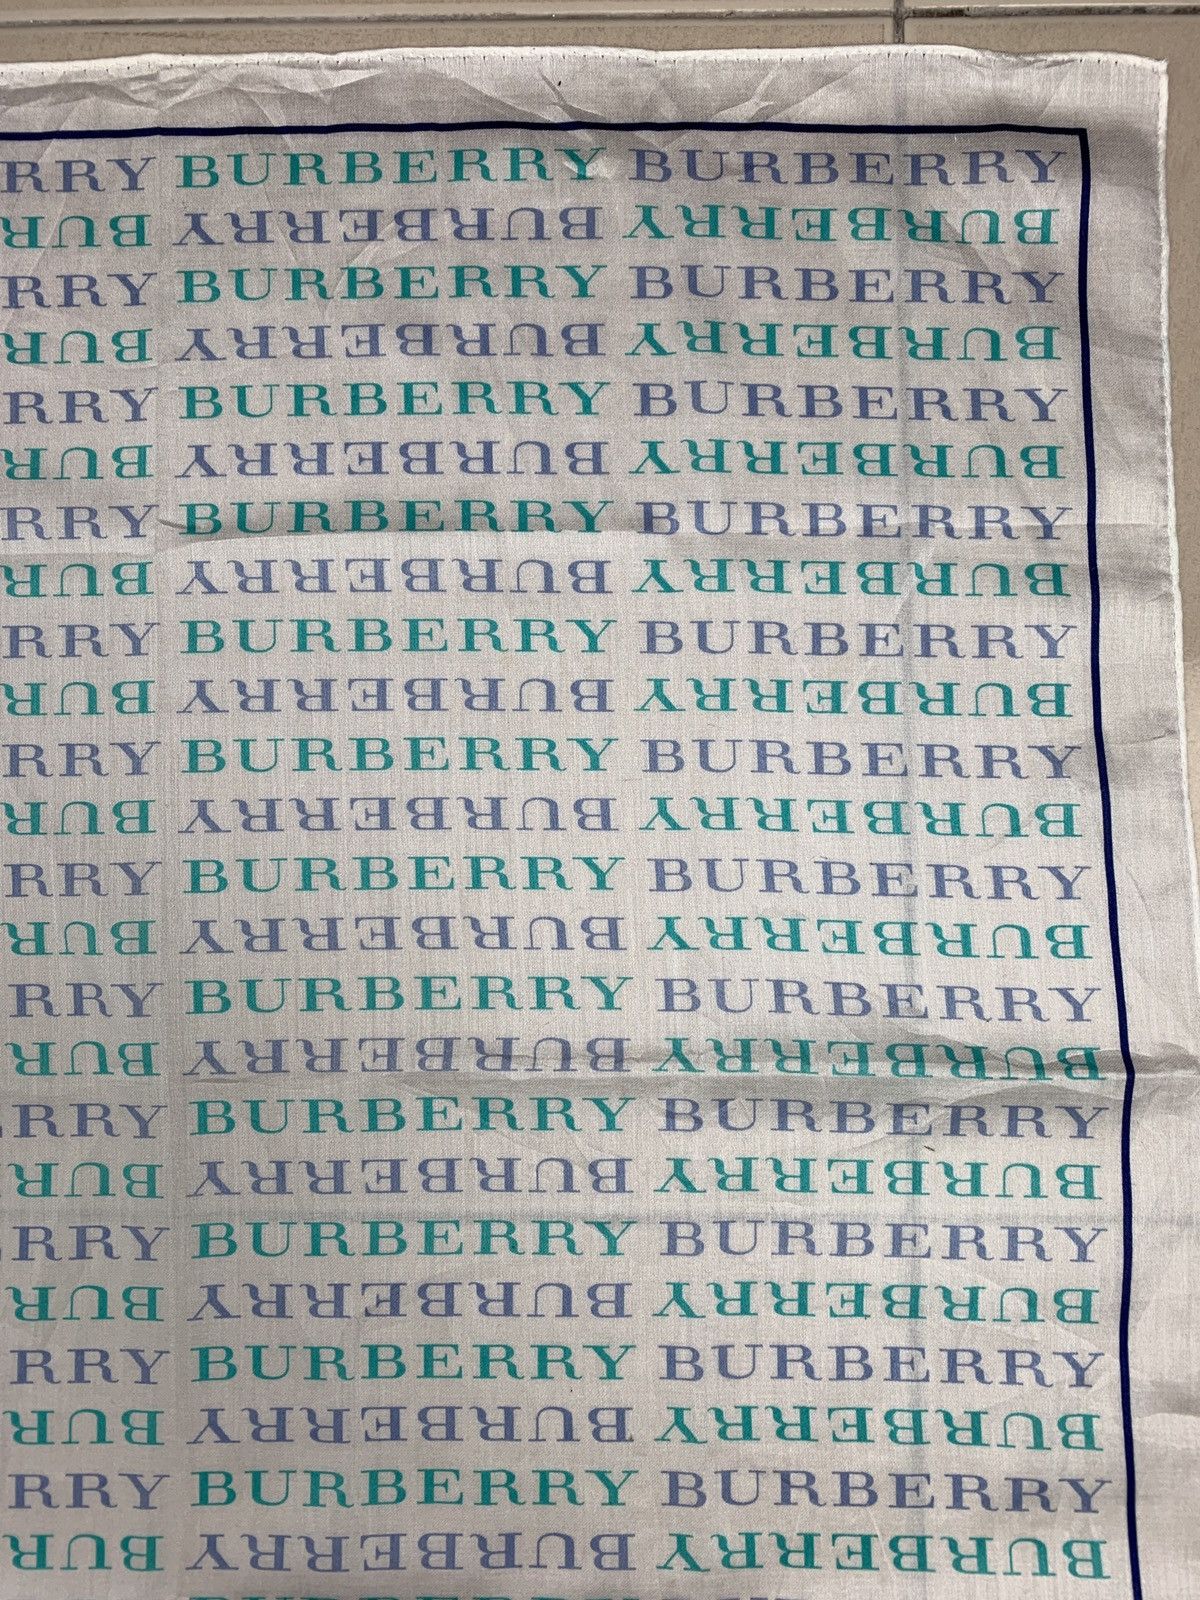 RRY BURBERRY BURBERRY
BURBERRY BURBERRY BUR
RRY BURBERRY BURBERRY
BURBERRY BURBERRY BUR
RRY BURBERRY BURBERRY
BURBERRY BURBERRY BUR
RRY BURBERRY BURBERRY
BURBERRY BURBERRY BUR
RRY BURBERRY BURBERRY
BURBERRY BURBERRY BUR
RRY BURBERRY BURBERRY
BURBERRY BURBERRY BUR
RRY BURBERRY BURBERRY
BURBERRY BURBERRY BUR
RRY BURBERRY BURBERRY
BURBERRY BURBERRY BUR
RRY BURBERRY BURBERRY
BURBERRY BURBERRY BUR
RRY BURBERRY BURBERRY
BURBERRY BURBERRY BUR
RRY BURBERRY BURBERRY
BURBERRY BURBERRY BUR
RRY BURBERRY BURBERRY
BURBERRY BURBERRY BUR